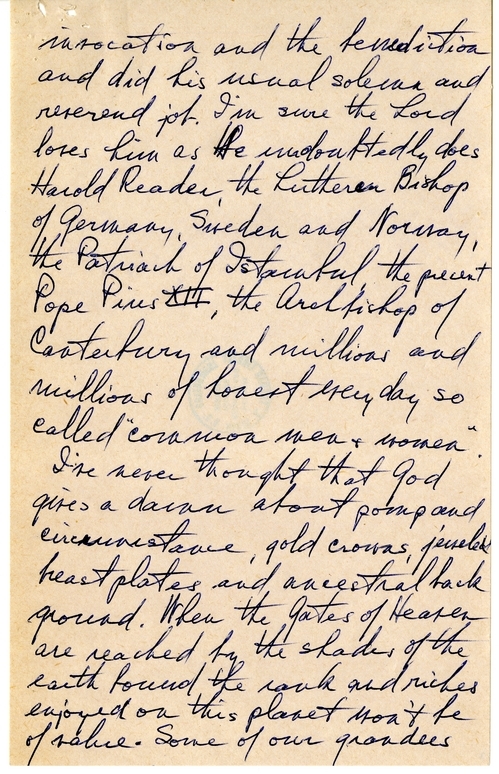 invocation and the benediction
and did his usual solemn and
reverend job. I'm sure the Lord
loves him as He undoubtedly does
Harold Reader, the Lutheran Bishop
of Germany, Sweden and Norway,
the Patriach of Istambul, the present
Pope Pius XII, the Archbishop of
Canterbury and millions and
millions of honest everyday so
called "common men & women".
I've never thought that God
gives a damn about pomp and
circumstance, gold crowns, jeweled
breastplates and ancestral back
ground. When the Gates of Heaven
are reached by the shades of the
earth bound the rank and riches
enjoyed on this planet won't be
of value. Some of our grandees